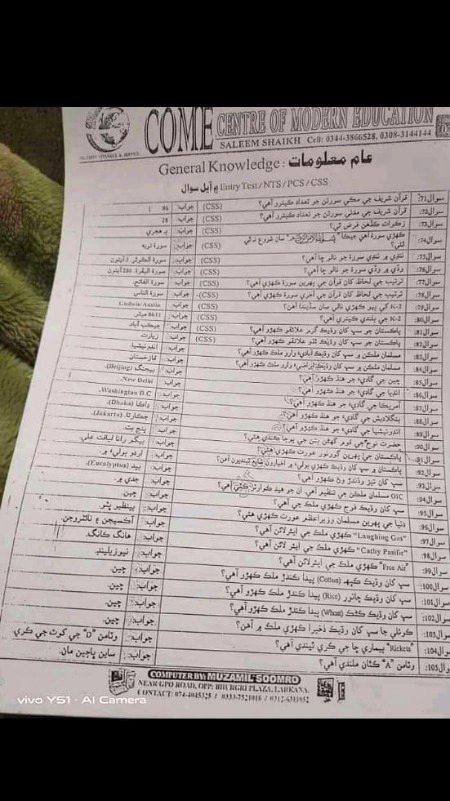 COME CENTRE OF MODERN EDUCATION
SALEEM SHAIKH Cell: 0344-3866528, 0308-3144144
General Knowledge: عام معلومات
Entry Test / NTS / PCS / CSS ۾ آيل سوال
سوال71: قرآن شريف جي مڪي سورتن جو تعداد ڪيترو آهي؟ (CSS) جواب: 86
سوال72: قرآن شريف جي مدني سورتن جو تعداد ڪيترو آهي؟ (CSS) جواب: 28
سوال73: زڪوات ڪڏهن فرض ٿي؟ (CSS) جواب: هجري
سوال74: ڪهڙي سورة آهي جيڪا سان شروع نه ٿي ٿئي؟ (CSS) جواب: سورة توبه
سوال75: ننڍي ۾ ننڍي سورة جو نالو ڇا آهي؟ (CSS) جواب: سورة الڪوثر، 3 آيتون
سوال76: وڏي ۾ وڏي سورة جو نالو ڇا آهي؟ (CSS) جواب: سورة البقرة، 286 آيتون
سوال77: ترتيب جي لحاظ کان قرآن جي پهرين سورة ڪهڙي آهي؟ (CSS) جواب: سورة الفاتح.
سوال78: ترتيب جي لحاظ کان قرآن جي آخري سورة ڪهڙي آهي؟ (CSS) جواب: سورة الناس
سوال79: K-2 کي ٻيو ڪهڙي نالي سان سڏيندا آهن؟ (CSS) جواب: Godwin Austin
سوال80: K-2 جي بلندي ڪيتري آهي؟ (CSS) جواب: 8611 ميٽر
سوال81: پاڪستان جو سڀ کان وڌيڪ گرم علائقو ڪهڙو آهي؟ (CSS) جواب: جيڪب آباد
سوال82: پاڪستان جو سڀ کان وڌيڪ ٿڌو علائقو ڪهڙو آهي؟ (CSS) جواب: زيارت.
سوال83: مسلمان ملڪن ۾ سڀ کان وڌيڪ آبادي وارو ملڪ ڪهڙو آهي؟ جواب: انڊونيشيا.
سوال84: مسلمان ملڪن ۾ سڀ کان وڌيڪ ايراضي وارو ملڪ ڪهڙو آهي؟ جواب: قازخستان
سوال85: چين جي گاديءَ جو هنڌ ڪهڙو آهي؟ جواب: بيجنگ (Beijing).
سوال86: انڊيا جي گاديءَ جو هنڌ ڪهڙو آهي؟ جواب: New Delhi
سوال87: آمريڪا جي گاديءَ جو هنڌ ڪهڙو آهي؟ جواب: Washington D.C
سوال88: بنگلاديش جي گاديءَ جو هنڌ ڪهڙو آهي؟ جواب: ڍاڪا (Dhaka).
سوال89: انڊونيشيا جي گاديءَ جو هنڌ ڪهڙو آهي؟ جواب: جڪارتا (Jakarta).
سوال90: حضرت نوح جي قوم گهڻن بتن جي پوڄا ڪندي هئي؟ جواب: پنج بت.
سوال91: پاڪستان جي پهرين گورنر عورت ڪهڙي هئي؟ جواب: بيگم رانا لياقت علي.
سوال92: پاڪستان ۾ سڀ کان وڌيڪ ڪهڙي ٻولي ۾ اخبارون شايع ٿينديون آهن؟ جواب: اردو ٻولي ۾.
سوال93: سڀ کان تيز وڌندڙ وڻ ڪهڙو آهي؟ جواب: (Eucalyptus)
سوال94: OIC مسلمان ملڪن جي تنظيم آهي. ان جو هيڊ ڪوارٽر ڪٿي آهي؟ جواب: جدي ۾.
سوال95: سڀ کان وڌيڪ فوج ڪهڙي ملڪ جي آهي؟ جواب: چين.
سوال96: دنيا جي پهرين مسلمان وزيراعظم عورت ڪهڙي هئي؟ جواب: بينظير ڀٽو.
سوال97: "Laughing Gas" جواب: آڪسيجن ۽ نائٽروجن.
سوال98: "Cathy Pasific" ڪهڙي ملڪ جي ايئر لائن آهي؟ جواب: هانگ ڪانگ.
سوال99: "Free Air" ڪهڙي ملڪ جي ايئر لائن آهي؟ جواب: نيوزيلينڊ.
سوال100: سڀ کان وڌيڪ ڪپهه (Cotton) پيدا ڪندڙ ملڪ ڪهڙو آهي؟ جواب: چين.
سوال101: سڀ کان وڌيڪ چانور (Rice) پيدا ڪندڙ ملڪ ڪهڙو آهي؟ جواب: چين.
سوال102: سڀ کان وڌيڪ ڪڻڪ (Wheat) پيدا ڪندڙ ملڪ ڪهڙو آهي؟ جواب: چين.
سوال103: جا سڀ کان وڌيڪ ذخيرا ڪهڙي ملڪ ۾ آهن؟ جواب: چين.
سوال104: "Rickets" بيماري ڇا جي ڪري ٿيندي آهي؟ جواب: وٽامن "D" جي کوٽ جي ڪري.
سوال105: وٽامن "A" ڪٿان ملندي آهي؟ جواب: ساين ڀاڄين مان.
COMPUTER BY: MUZAMIL SOOMRO
NEAR GPO ROAD, OPP: BHURGRI PLAZA, LARKANA.
CONTACT: 074-4045325 / 0333-7521016 / 0312-6311952
vivo Y51 · AI Camera